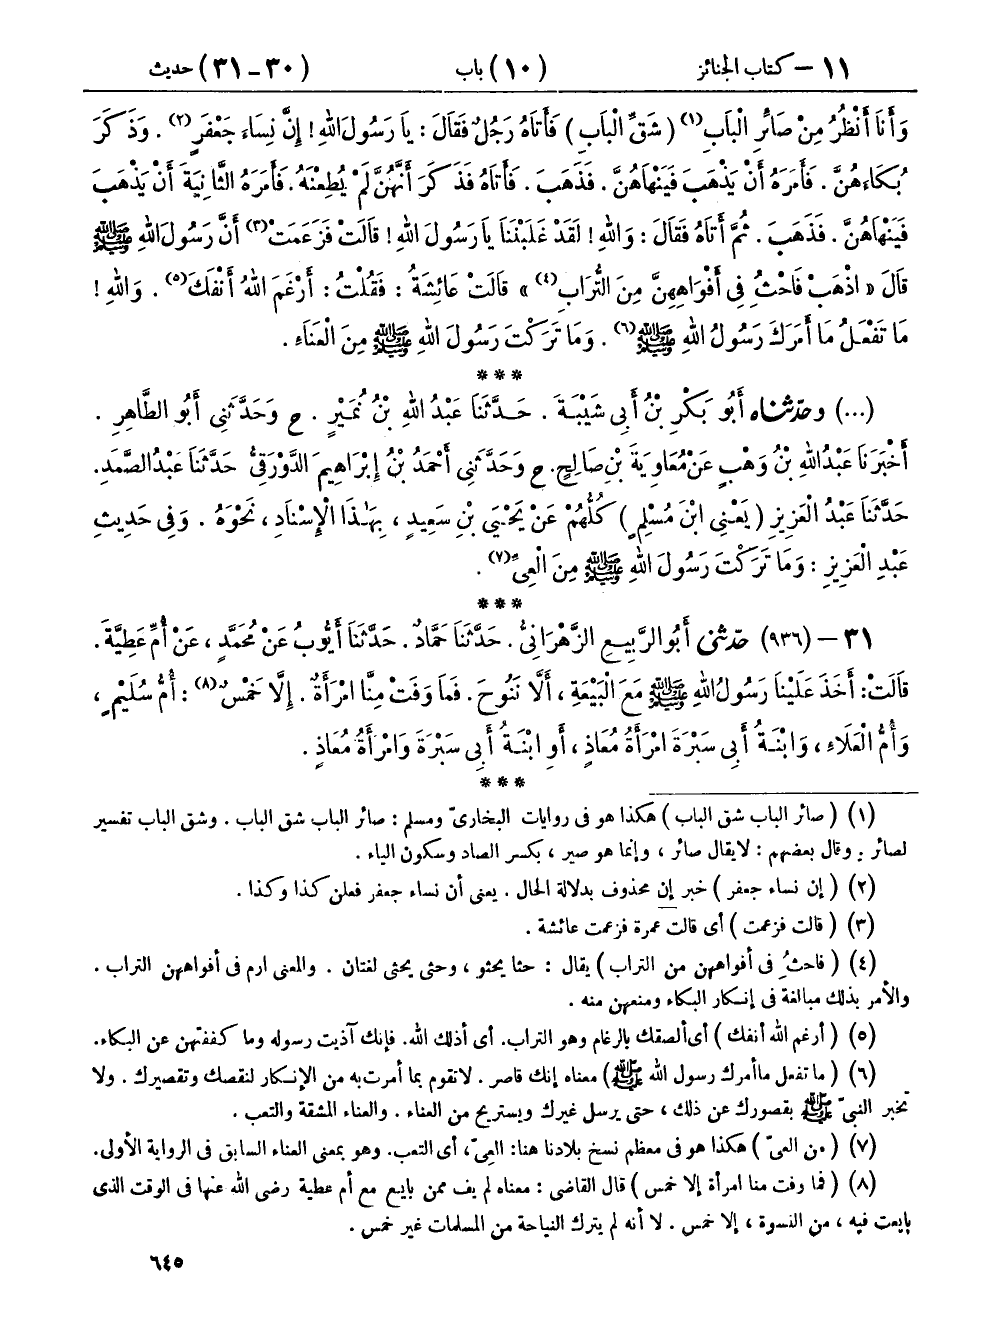 ١١ – كتاب الجنائز (١٠) باب (٣٠ – ٣١) حديث
وَأَنَا أَنْظُرُ مِنْ صَائِرِ الْبَابِ(١) ( شَقِّ الْبَابِ ) فَأَتَاهُ رَجُلٌ فَقَالَ : يَا رَسُولَ اللهِ ! إِنَّ نِسَاءَ جَعْفَرٍ(٢) . وَذَكَرَ
بُكَاءَهُنَّ . فَأَمَرَهُ أَنْ يَذْهَبَ فَيَنْهَاهُنَّ . فَذَهَبَ . فَأَتَاهُ فَذَكَرَ أَنَّهُنَّ لَمْ يُطِعْنَهُ . فَأَمَرَهُ الثَّانِيَةَ أَنْ يَذْهَبَ
فَيَنْهَاهُنَّ . فَذَهَبَ . ثُمَّ أَتَاهُ فَقَالَ : وَاللهِ ! لَقَدْ غَلَبْنَنَا يَا رَسُولَ اللهِ ! قَالَتْ فَزَعَمَتْ(٣) أَنَّ رَسُولَ اللهِ ﷺ
قَالَ « اذْهَبْ فَاحْثُ فِي أَفْوَاهِهِنَّ مِنَ التُّرَابِ(٤) » قَالَتْ عَائِشَةُ : فَقُلْتُ : أَرْغَمَ اللهُ أَنْفَكَ(٥) . وَاللهِ !
مَا تَفْعَلُ مَا أَمَرَكَ رَسُولُ اللهِ ﷺ(٦) . وَمَا تَرَكْتَ رَسُولَ اللهِ ﷺ مِنَ الْعَنَاءِ .
***
(...) وحدّثناه أَبُو بَكْرِ بْنُ أَبِي شَيْبَةَ . حَدَّثَنَا عَبْدُ اللهِ بْنُ نُمَيْرٍ . ح وَحَدَّثَنِي أَبُو الطَّاهِرِ .
أَخْبَرَنَا عَبْدُ اللهِ بْنُ وَهْبٍ عَنْ مُعَاوِيَةَ بْنِ صَالِحٍ . ح وَحَدَّثَنِي أَحْمَدُ بْنُ إِبْرَاهِيمَ الدَّوْرَقِيُّ حَدَّثَنَا عَبْدُ الصَّمَدِ .
حَدَّثَنَا عَبْدُ الْعَزِيزِ ( يَعْنِي ابْنَ مُسْلِمٍ ) كُلُّهُمْ عَنْ يَحْيَى بْنِ سَعِيدٍ ، بِهَذَا الْإِسْنَادِ ، نَحْوَهُ . وَفِي حَدِيثِ
عَبْدِ الْعَزِيزِ : وَمَا تَرَكْتَ رَسُولَ اللهِ ﷺ مِنَ الْعِيِّ(٧) .
***
٣١ – (٩٣٦) حدّثني أَبُو الرَّبِيعِ الزَّهْرَانِيُّ . حَدَّثَنَا حَمَّادٌ . حَدَّثَنَا أَيُّوبُ عَنْ مُحَمَّدٍ ، عَنْ أُمِّ عَطِيَّةَ .
قَالَتْ : أَخَذَ عَلَيْنَا رَسُولُ اللهِ ﷺ مَعَ الْبَيْعَةِ ، أَلَّا نَنُوحَ . فَمَا وَفَتْ مِنَّا امْرَأَةٌ . إِلَّا خَمْسٌ(٨) : أُمُّ سُلَيْمٍ ،
وَأُمُّ الْعَلَاءِ ، وَابْنَةُ أَبِي سَبْرَةَ امْرَأَةُ مُعَاذٍ ، أَوِ ابْنَةُ أَبِي سَبْرَةَ وَامْرَأَةُ مُعَاذٍ .
***
(١) ( صائر الباب شق الباب ) هكذا هو فى روايات البخارىّ ومسلم : صائر الباب شق الباب . وشق الباب تفسير
لصائر . وقال بعضهم : لا يقال صائر ، وإنما هو صير ، بكسر الصاد وسكون الياء .
(٢) ( إن نساء جعفر ) خبر إن محذوف بدلالة الحال . يعنى أن نساء جعفر فعلن كذا وكذا .
(٣) ( قالت فزعمت ) أى قالت عمرة فزعمت عائشة .
(٤) ( فاحثُ فى أفواههن من التراب ) يقال : حثا يحثو ، وحثى يحثى لغتان . والمعنى ارم فى أفواههن التراب .
والأمر بذلك مبالغة فى إنكار البكاء ومنعهن منه .
(٥) ( أرغم الله أنفك ) أى ألصقك بالرغام وهو التراب. أى أذلك الله. فإنك آذيت رسوله وما كففتهن عن البكاء.
(٦) ( ما تفعل ما أمرك رسول الله ﷺ ) معناه إنك قاصر . لا تقوم بما أمرت به من الإنكار لنقصك وتقصيرك . ولا
تخبر النبىّ ﷺ بقصورك عن ذلك ، حتى يرسل غيرك ويستريح من العناء . والعناء المشقة والتعب .
(٧) ( من العىّ ) هكذا هو فى معظم نسخ بلادنا هنا: العىّ، أى التعب. وهو بمعنى العناء السابق فى الرواية الأولى.
(٨) ( فما وفت منا امرأة إلا خمس ) قال القاضى : معناه لم يف ممن بايع مع أم عطية رضى الله عنها فى الوقت الذى
بايعت فيه ، من النسوة ، إلا خمس . لا أنه لم يترك النياحة من المسلمات غير خمس .
٦٤٥